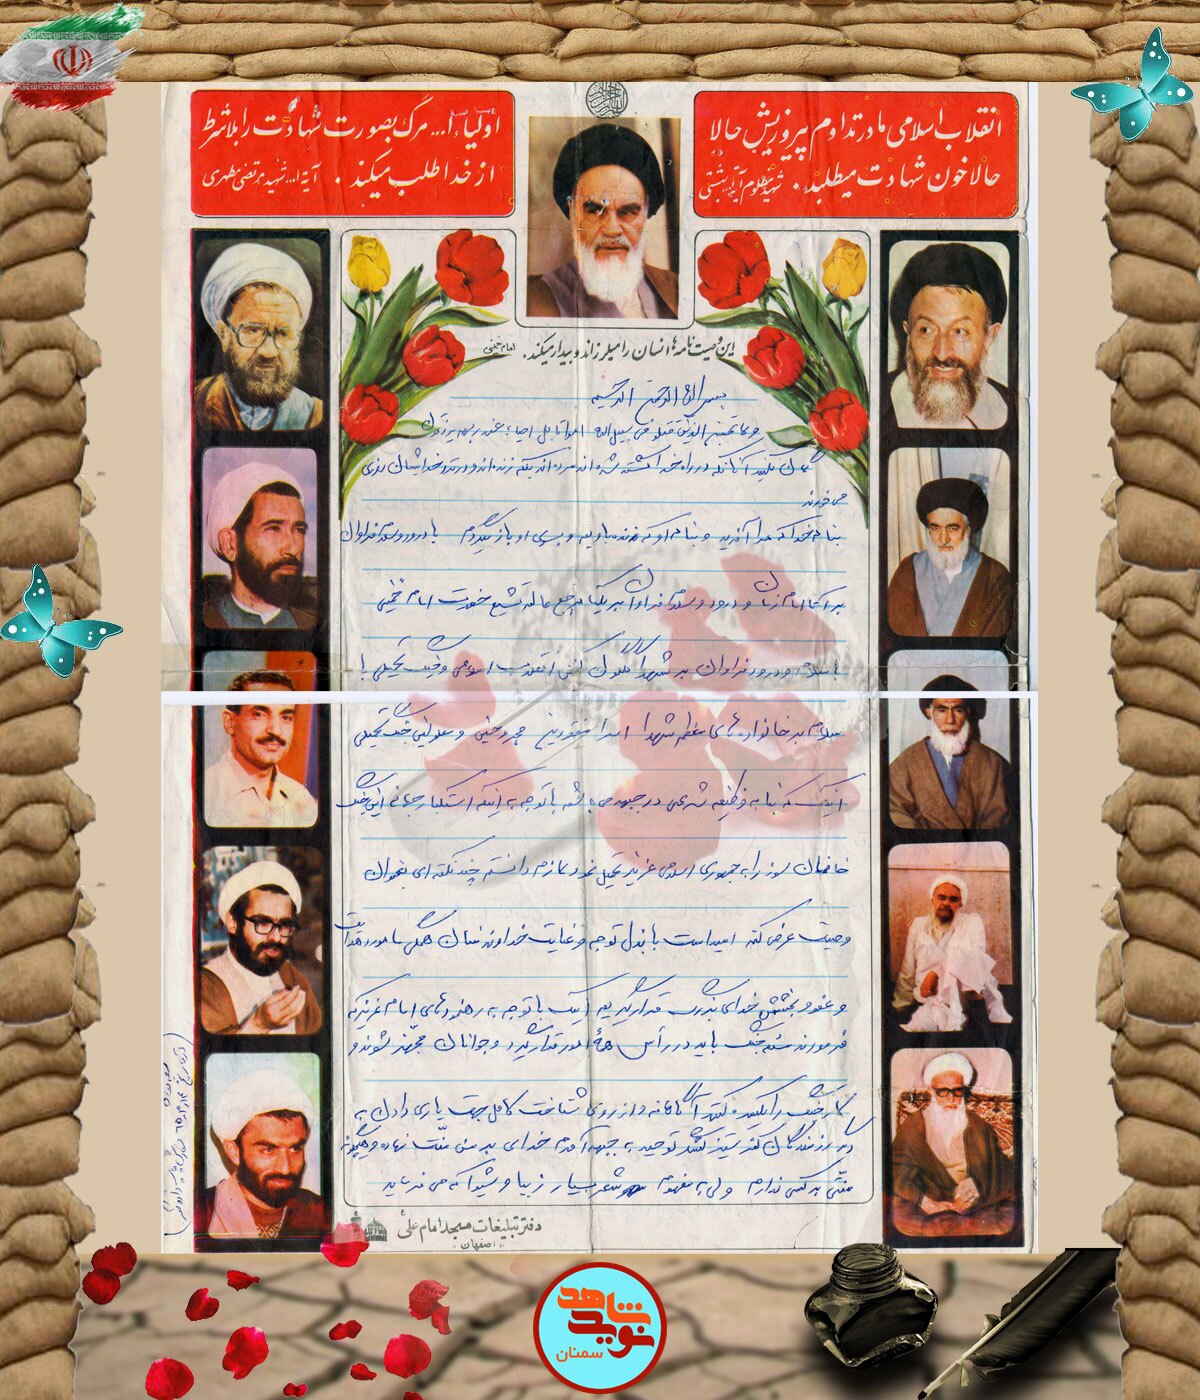 انقلاب اسلامی ما در تداوم پیروزیش حالا
حالا خون شهادت میطلبد. شهید مظلوم آیة ا... بهشتی
اولیاء ا... مرگ بصورت شهادت را بلاشرط
از خدا طلب میکند. آیة ا... شهید مرتضی مطهری
این وصیت نامه ها انسان را میلرزاند و بیدار میکند. امام خمینی
بسم الله الرحمن الرحیم
و لا تحسبن الذین قتلوا فی سبیل الله امواتا بل احیاء عند ربهم یرزقون
گمان نکنید آنانکه در راه خدا کشته شده اند مرده اند بلکه زنده اند و در نزد خدایشان روزی
می خورند
بنام خدا که مرا آفرید و بنام او که زنده باویم و بسوی او باز میگردم با درود و سلام فراوان
بر آقا امام زمان و درود و سلام فراوان بر یگانه مرجع عالم تشیع حضرت امام خمینی
با سلام و درود فراوان بر شهدا گلگون کفن انقلاب اسلامی و جنگ تحمیلی با
سلام بر خانواده های معظم شهدا اسرا مفقودین مجروحین و معلولین جنگ تحمیلی
اینک که بنا به وظیفه شرعی در جبهه می باشم با توجه به اینکه استکبار جهانی این جنگ
خانمان سوز را به جمهوری اسلامی عزیز تحمیل نمود لازم دانستم چند نکته ای بعنوان
وصیت عرض کنم امید است با بذل توجه و عنایت خداوند منان همگی ما مورد هدایت
و عفو و بخشش خدای بزرگ قرار گیریم اینک با توجه به رهنمودهای امام عزیز که
فرمودند مسئله جنگ باید در رأس همهٔ امور قرار گیرد و جوانان مجهز شوند و
کار جنگ را یکسره کنند آگاهانه و از روی شناخت کامل جهت یاری دادن به
دیگر رزمندگان کفر ستیز لشکر توحید به جبهه آمدم خدای بر من منت نهاده و هیچگونه
منتی بر کسی ندارم ولی به مفهوم شعر بسیار زیبا و شیوا که می فرماید
دفتر تبلیغات مسجد امام علی
اصفهان
شاهد
نوید
سمنان